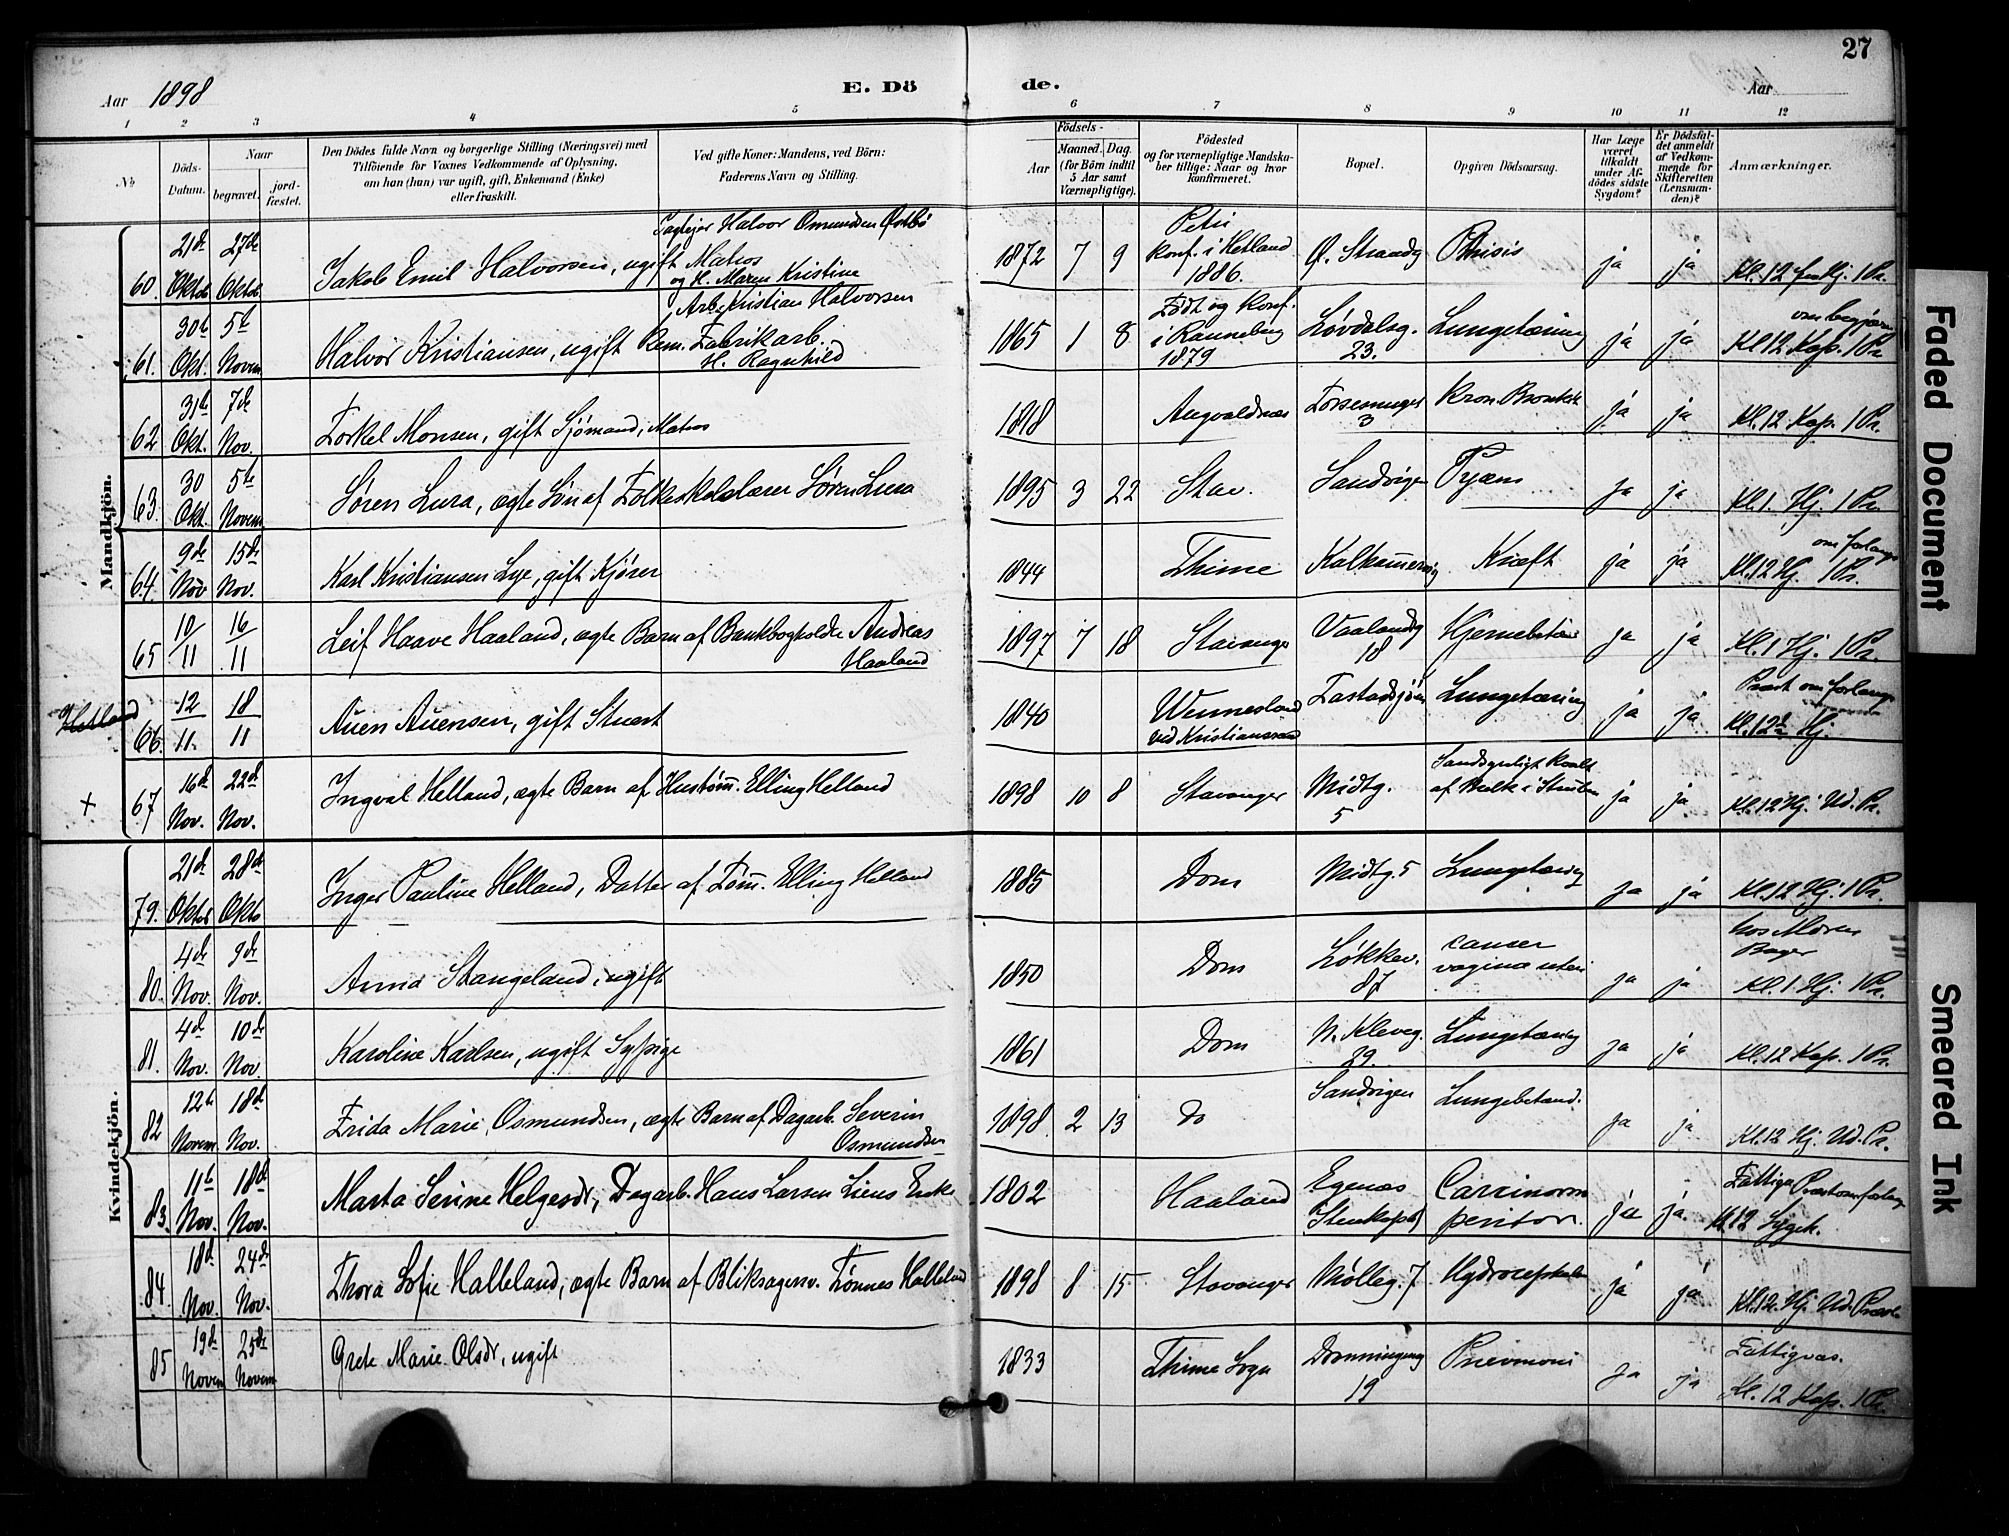 27
Aar 1898
E. Dö de.
Aar
1 2 3 4 5 6 7 8 9 10 11 12
No
Döds-Datum.
Naar
begravet.
jord-fæstet.
Den Dödes fulde Navn og borgerlige Stilling (Næringsvei) med
Tilföiende for Voxnes Vedkommende af Oplysning,
om han (hun) var ugift, gift, Enkemand (Enke)
eller fraskilt.
Ved gifte Koner: Mandens, ved Börn:
Faderens Navn og Stilling.
Födsels-
Aar
Maaned. Dag.
(for Börn indtil
5 Aar samt
Værnepligtige).
Födested
og for værnepligtige Mandska-
ber tillige: Naar og hvor
konfirmeret.
Bopæl.
Opgiven Dödsaarsag.
Har Læge
været
tilkaldt
under Af-
dödes sidste
Sygdom?
Er Dödsfal-
det anmeldt
af Vedkom-
mende for
Skifteretten
(Lensman-
den)?
Anmærkninger.
Mandkjön.
60. 21de Oktob 27de Oktob. Jakob Emil Halvorsen, ugift Matros Halvor Osmundsen Østbø og H. Maren Kristine 1872 7 9 Petri konf. i Hetland 1886. Ø. Strandg Phtisis ja ja Kl. 12 1 Pr.
61. 30te Okt. 5te Novem Halvor Kristiansen, ugift Fabrikarb. Arb. Kristian Halvorsen H. Ragnhild 1865 1 8 Født og konf. i Renneberg 1879 Løvdalsg. 23. Lungetæring ja ja om begjær Kl 12 Kap. 1 Pr.
62 31te Okt. 7de Nov. Torkel Monsen, gift Sjømand, Matros 1818 Augvaldnæs 3 Kron. Bronkit ja ja Kl. 12 Kap. 1 Pr.
63. 30 Okt. 5te Novem Søren Lura, ægte Søn af Folkeskolelærer Søren Lura 1895 3 22 Stav. Sandvigen Pyæmi ja ja Kl. 1. Hj. 1 Pr.
64. 9de Nov 15de Nov. Karl Kristiansen Lye, gift Kjører 1844 Thime Kræft ja ja om forlangt Kl. 12 Hj. 1 Pr.
65 10/11 16/11 Leif Haave Haaland, ægte Barn af Bankbogholder Andreas Haaland 1897 7 18 Stavanger Vaalandsg 18 Hjernebetæn ja ja Kl. 1 Hj. 1 Pr.
Hetland 66. 12/11. 18/11 Auen Auensen, gift Stuert 1840 Wennesland ved Kristianssand Lungetæring ja ja Præst om forlangt Kl. 12½ Hj.
+ 67 16de Nov. 22de Nov. Ingval Helland, ægte Barn af Hustøm. Elling Helland 1898 10 8 Stavanger Midtg. 5 Sandsynligt kvalt af Mælk i Struben ja ja Kl. 12 Hj. Ud. Pr.
Kvindekjön.
79. 21de Oktob 28de Okto Inger Pauline Helland, Datter af Tøm. Elling Helland 1885 Dom Midtg. 5 Lungetæring ja ja Kl. 12 Hj. 1 Pr.
80. 4de Nov. 9de Nov. Anna Stangeland, ugift 1850 Dom Løkkev. 87 cancer vagina uteri ja ja hos Moren Bager Kl. 1. Hj. 1 Pr.
81. 4de Nov. 10de Nov. Karoline Karlsen, ugift Sypige 1861 Dom N. Kleveg. 29. Lungetæring ja ja Kl. 12 Kap. 1 Pr.
82 12te Novem. 18de Nov. Frida Marie Osmundsen, ægte Barn af Dagarb. Severin Osmundsen 1898 2 13 do Sandvigen Lungebetænd. ja ja Kl. 12 Hj. Ud. Pr.
83. 11te Nov. 18de Nov. Marta Serine Helgesdr, Dagarb. Hans Larsen Liens Enke 1802 Haaland Egenæs Stenkopf Carcinorm periton. ja ja. Fattige Præst om forlang Kl. 12 Sygeh.
84. 18de Nov. 24de Nov. Thora Sofie Halleland, ægte Barn af Bliksagensv. Tønnes Halleland 1898 8 15 Stavanger Mølleg. 7 Hydrocephalus ja ja Kl. 12. Hj. Ud. Præst
85 19de Novem 25de Novem Grete Marie Olsdr, ugift 1833 Thime Sogn Dronningeng 19 Pnevmoni ja ja Fattigvæs. Kl. 12 Kap. 1 Pr.
Faded Document
Smeared Ink